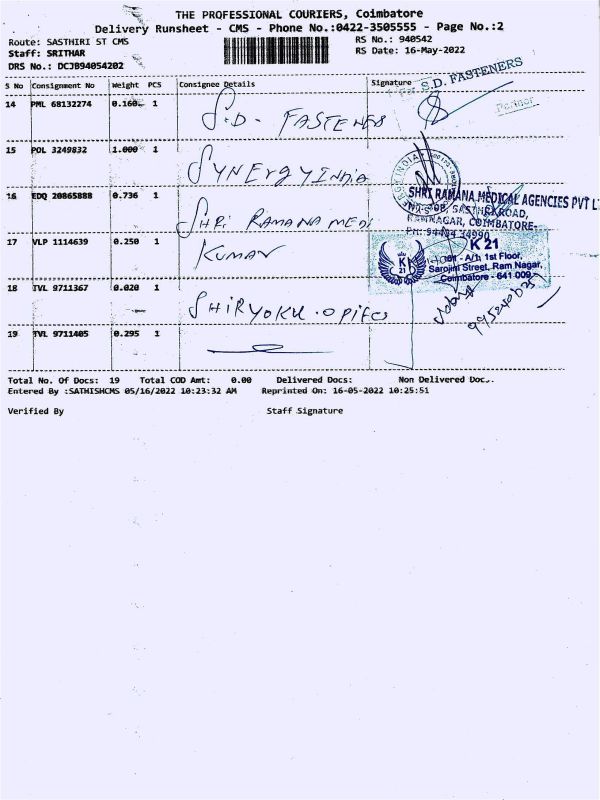 THE PROFESSIONAL COURIERS, Coimbatore
Delivery Runsheet - CMS - Phone No.:0422-3505555 - Page No.:2
Route: SASTHIRI ST CMS RS No.: 940542
Staff: SRITHAR RS Date: 16-May-2022
DRS No.: DCJB94054202
S No Consignment No Weight PCS Consignee Details Signature
14 PML 68132274 0.160 1 S.D - FASTENERS
S.D. FASTENERS
Partner
15 POL 3249832 1.000 1 SYNERGY INDIA
16 EDQ 20865888 0.736 1 SHRI RAMANA MEDI
SHRI RAMANA MEDICAL AGENCIES PVT LT
ROAD,
RAMNAGAR, COIMBATORE-
PH: 94434 34990
17 VLP 1114639 0.250 1 KUMAR
K 21
K
21
1st Floor,
Sarojini Street, Ram Nagar,
Coimbatore - 641 009
18 TVL 9711367 0.020 1 SHIRYOKU.OPIFCS
19 TVL 9711405 0.295 1
Total No. Of Docs: 19 Total COD Amt: 0.00 Delivered Docs: Non Delivered Doc
Entered By :SATHISHCMS 05/16/2022 10:23:32 AM Reprinted On: 16-05-2022 10:25:51
Verified By Staff Signature